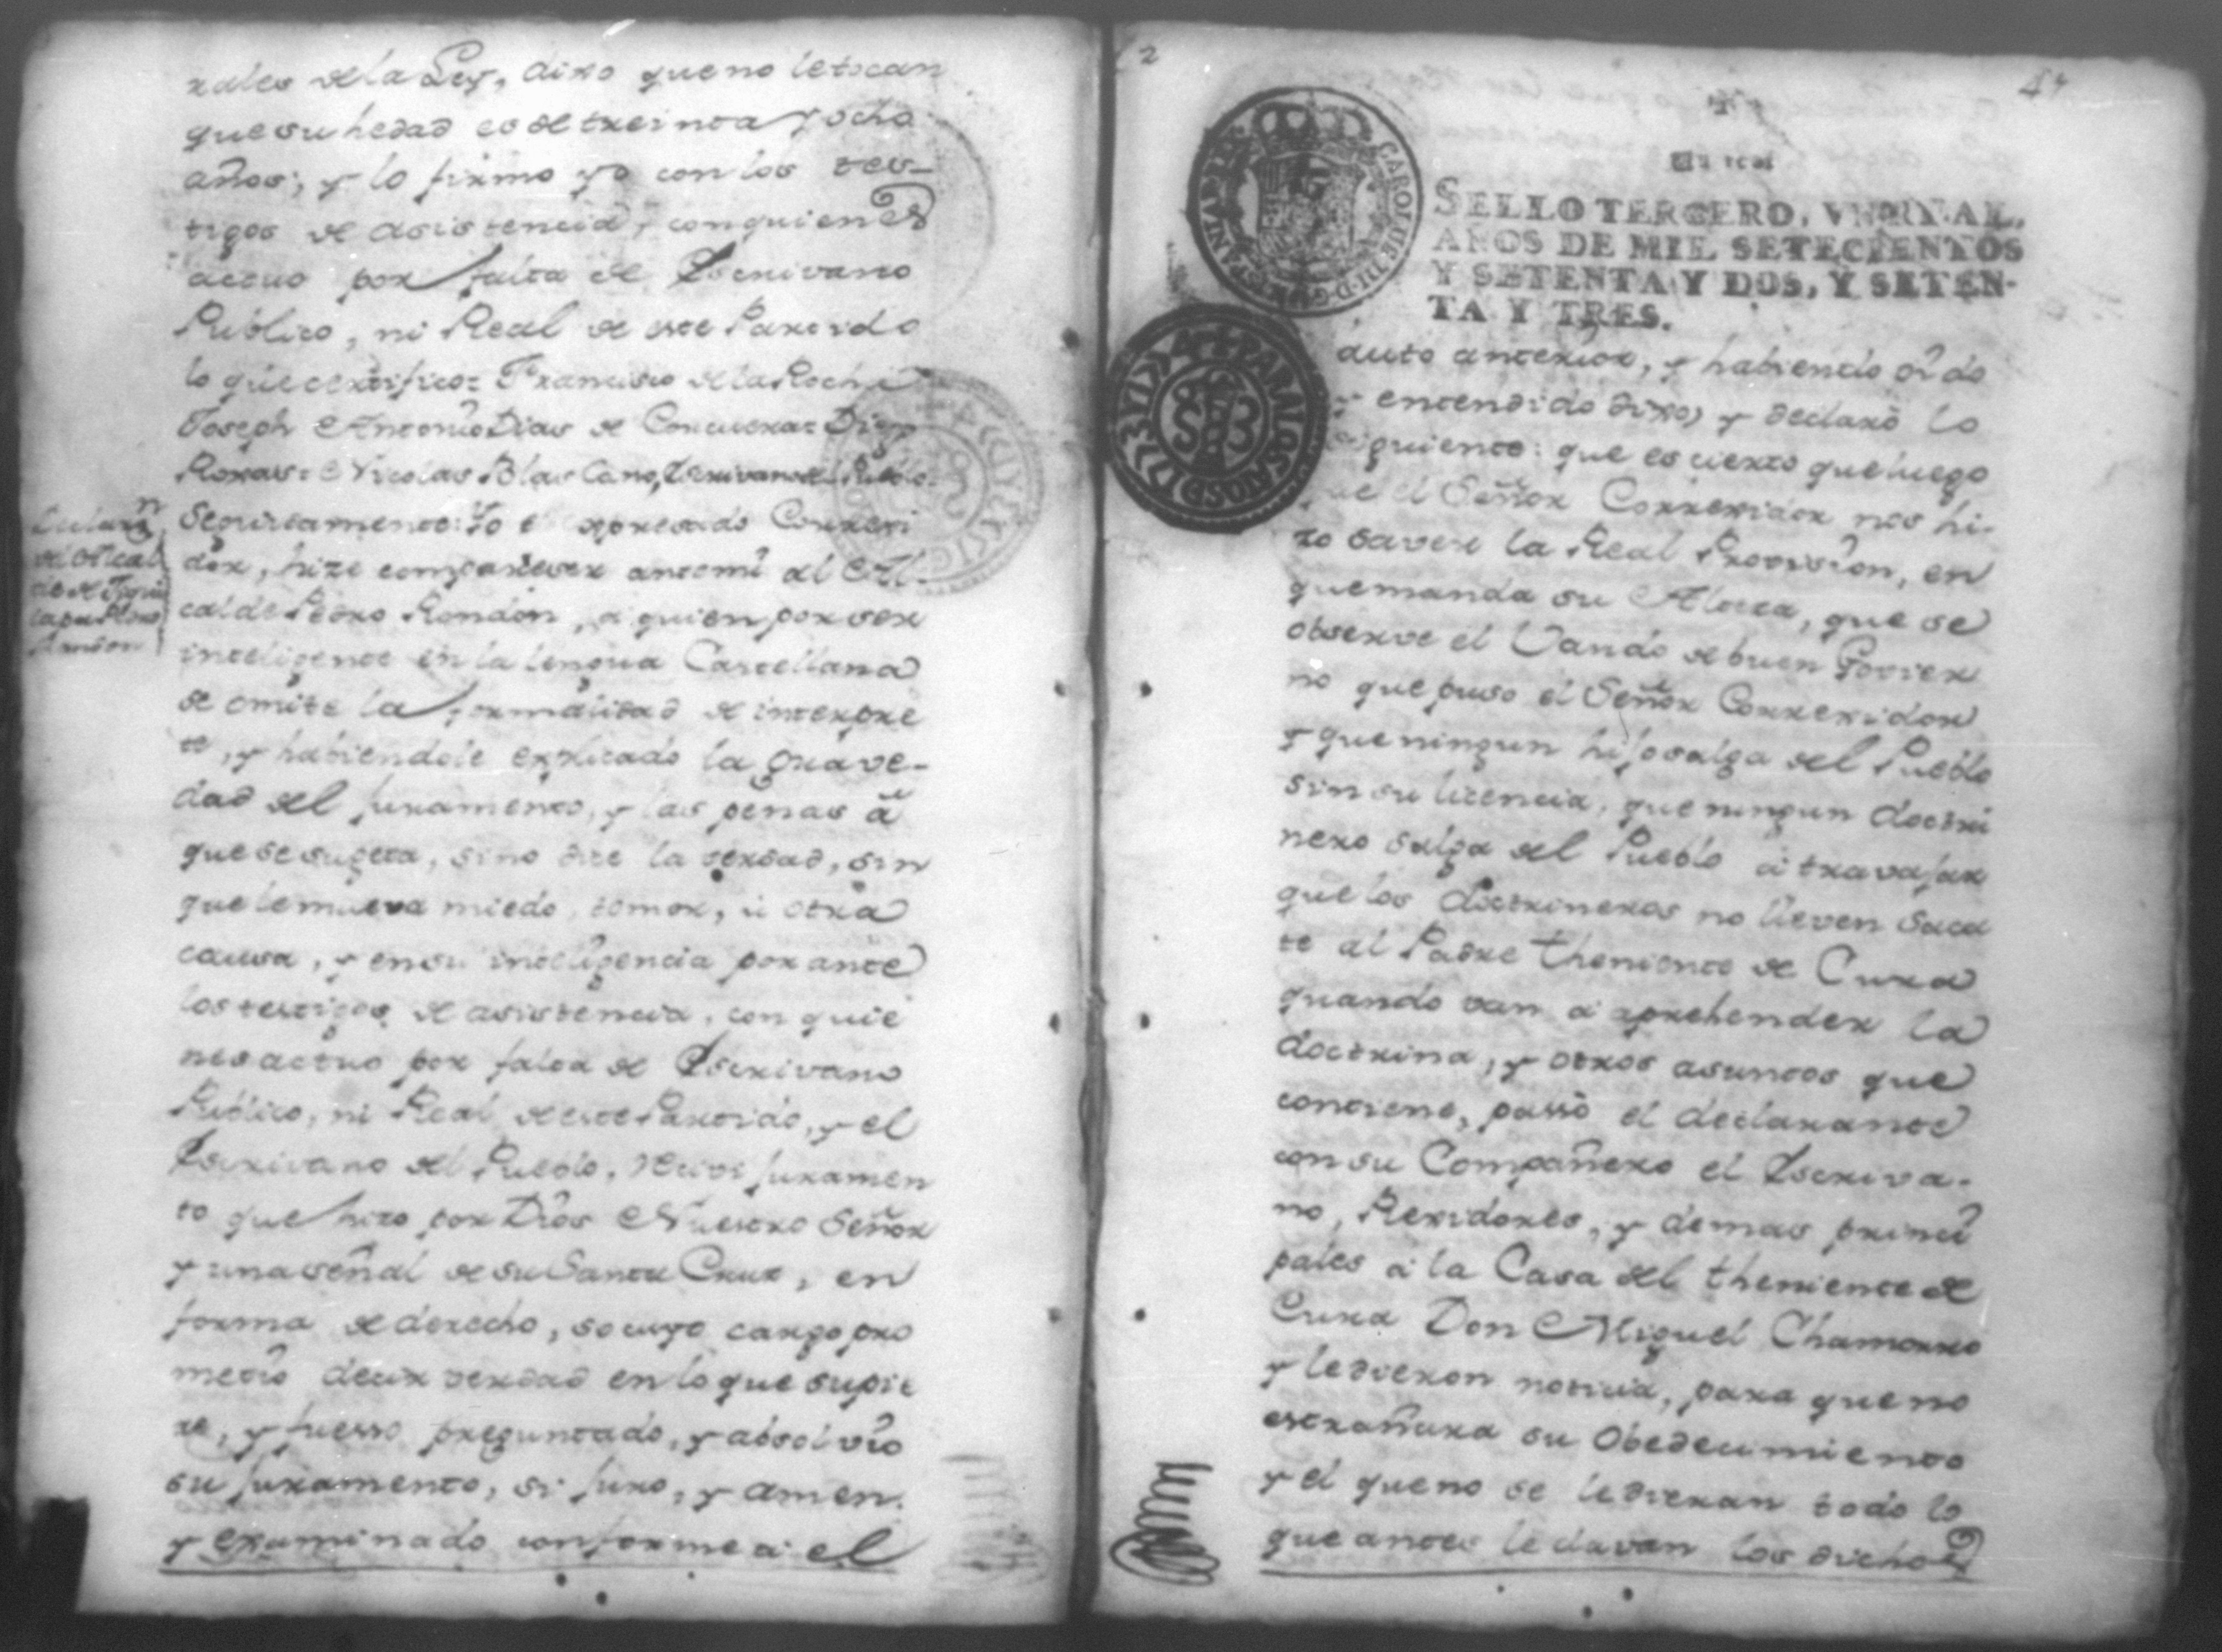 rales de la Ley, dixo que no le tocan
que su hedad es de treinta y ocho
años, y lo firmo yo con los tes-
tigos de asistencia, con quienes
actuo por falta de Escrivano
Publico, ni Real de este Partido
lo que certifico= Francisco de la Rocha
Joseph Antonio Dias de Concuera= Diego
Roxas= Nicolas Blas Cano, Escrivano del Pueblo.
Declaraz.n
del Alcal
de de
Pedro
Rondon
Seguidamente: Yo el expresado Correxi
dor, hize comparecer ante mi al Al-
calde Pedro Rondon, a quien por ser
inteligente en la lengua Castellana
se omite la formalidad de interpre
te, y habiendole explicado la grave-
dad del juramento, y las penas á
que se sugeta, sino dice la verdad, sin
que le mueva miedo, temor, ú otra
causa, y en su inteligencia por ante
los testigos de asistencia, con quie
nes actuo por falta de Escrivano
Publico, ni Real de este Partido, y el
Escrivano del Pueblo, recivi juramen
to que hizo por Dios Nuestro Señor
y una señal de su Santa Cruz, en
forma de derecho, so cuyo cargo pro
metio decir verdad en lo que supie
re, y fuesse preguntado, y absolvio
su juramento, si juro, y amen.
y examinado conforme a el
2
Un real
SELLO TERCERO, VN REAL,
AÑOS DE MIL SETECIENTOS
Y SETENTA Y DOS, Y SETEN-
TA Y TRES.
CAROLUS III D. G. HISPANIAR
PARA LOS AÑOS D
auto anterior, y habiendo oido
y entendido dixo, y declaró lo
siguiente: que es cierto que luego
que el Señor Correxidor nos hi-
zo saver la Real Provision, en
que manda su Alteza, que se
observe el Vando de buen Govier
no que puso el Señor Correxidor
y que ningun hijo salga del Pueblo
sin su licencia, que ningun doctri
nero salga del Pueblo á travajar
que los doctrineros no lleven saca
te al Padre theniente de Cura
quando van á aprehender la
doctrina, y otros asuntos que
contiene, passó el declarante
con su Compañero el Escriva-
no, Rexidores, y demas princi
pales á la Casa del theniente de
Cura Don Miguel Chamorro
y le dieron noticia, para que no
estrañara su Obedecimiento
y el que no se le dieran todo lo
que antes le davan los dichos